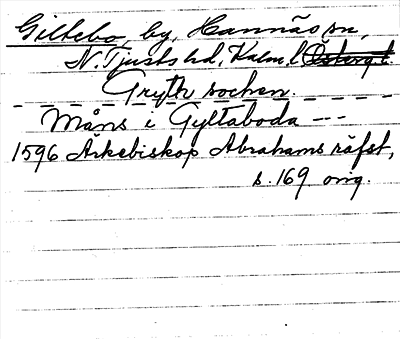 Giltebo, by, Hannäs sn,
N. Tjusts hd, Kalm. l. Östergl.
Gryth sochen.
Måns i Gyltaboda ---
1596 Ärkebiskop Abrahams räfst,
s. 169 orig.